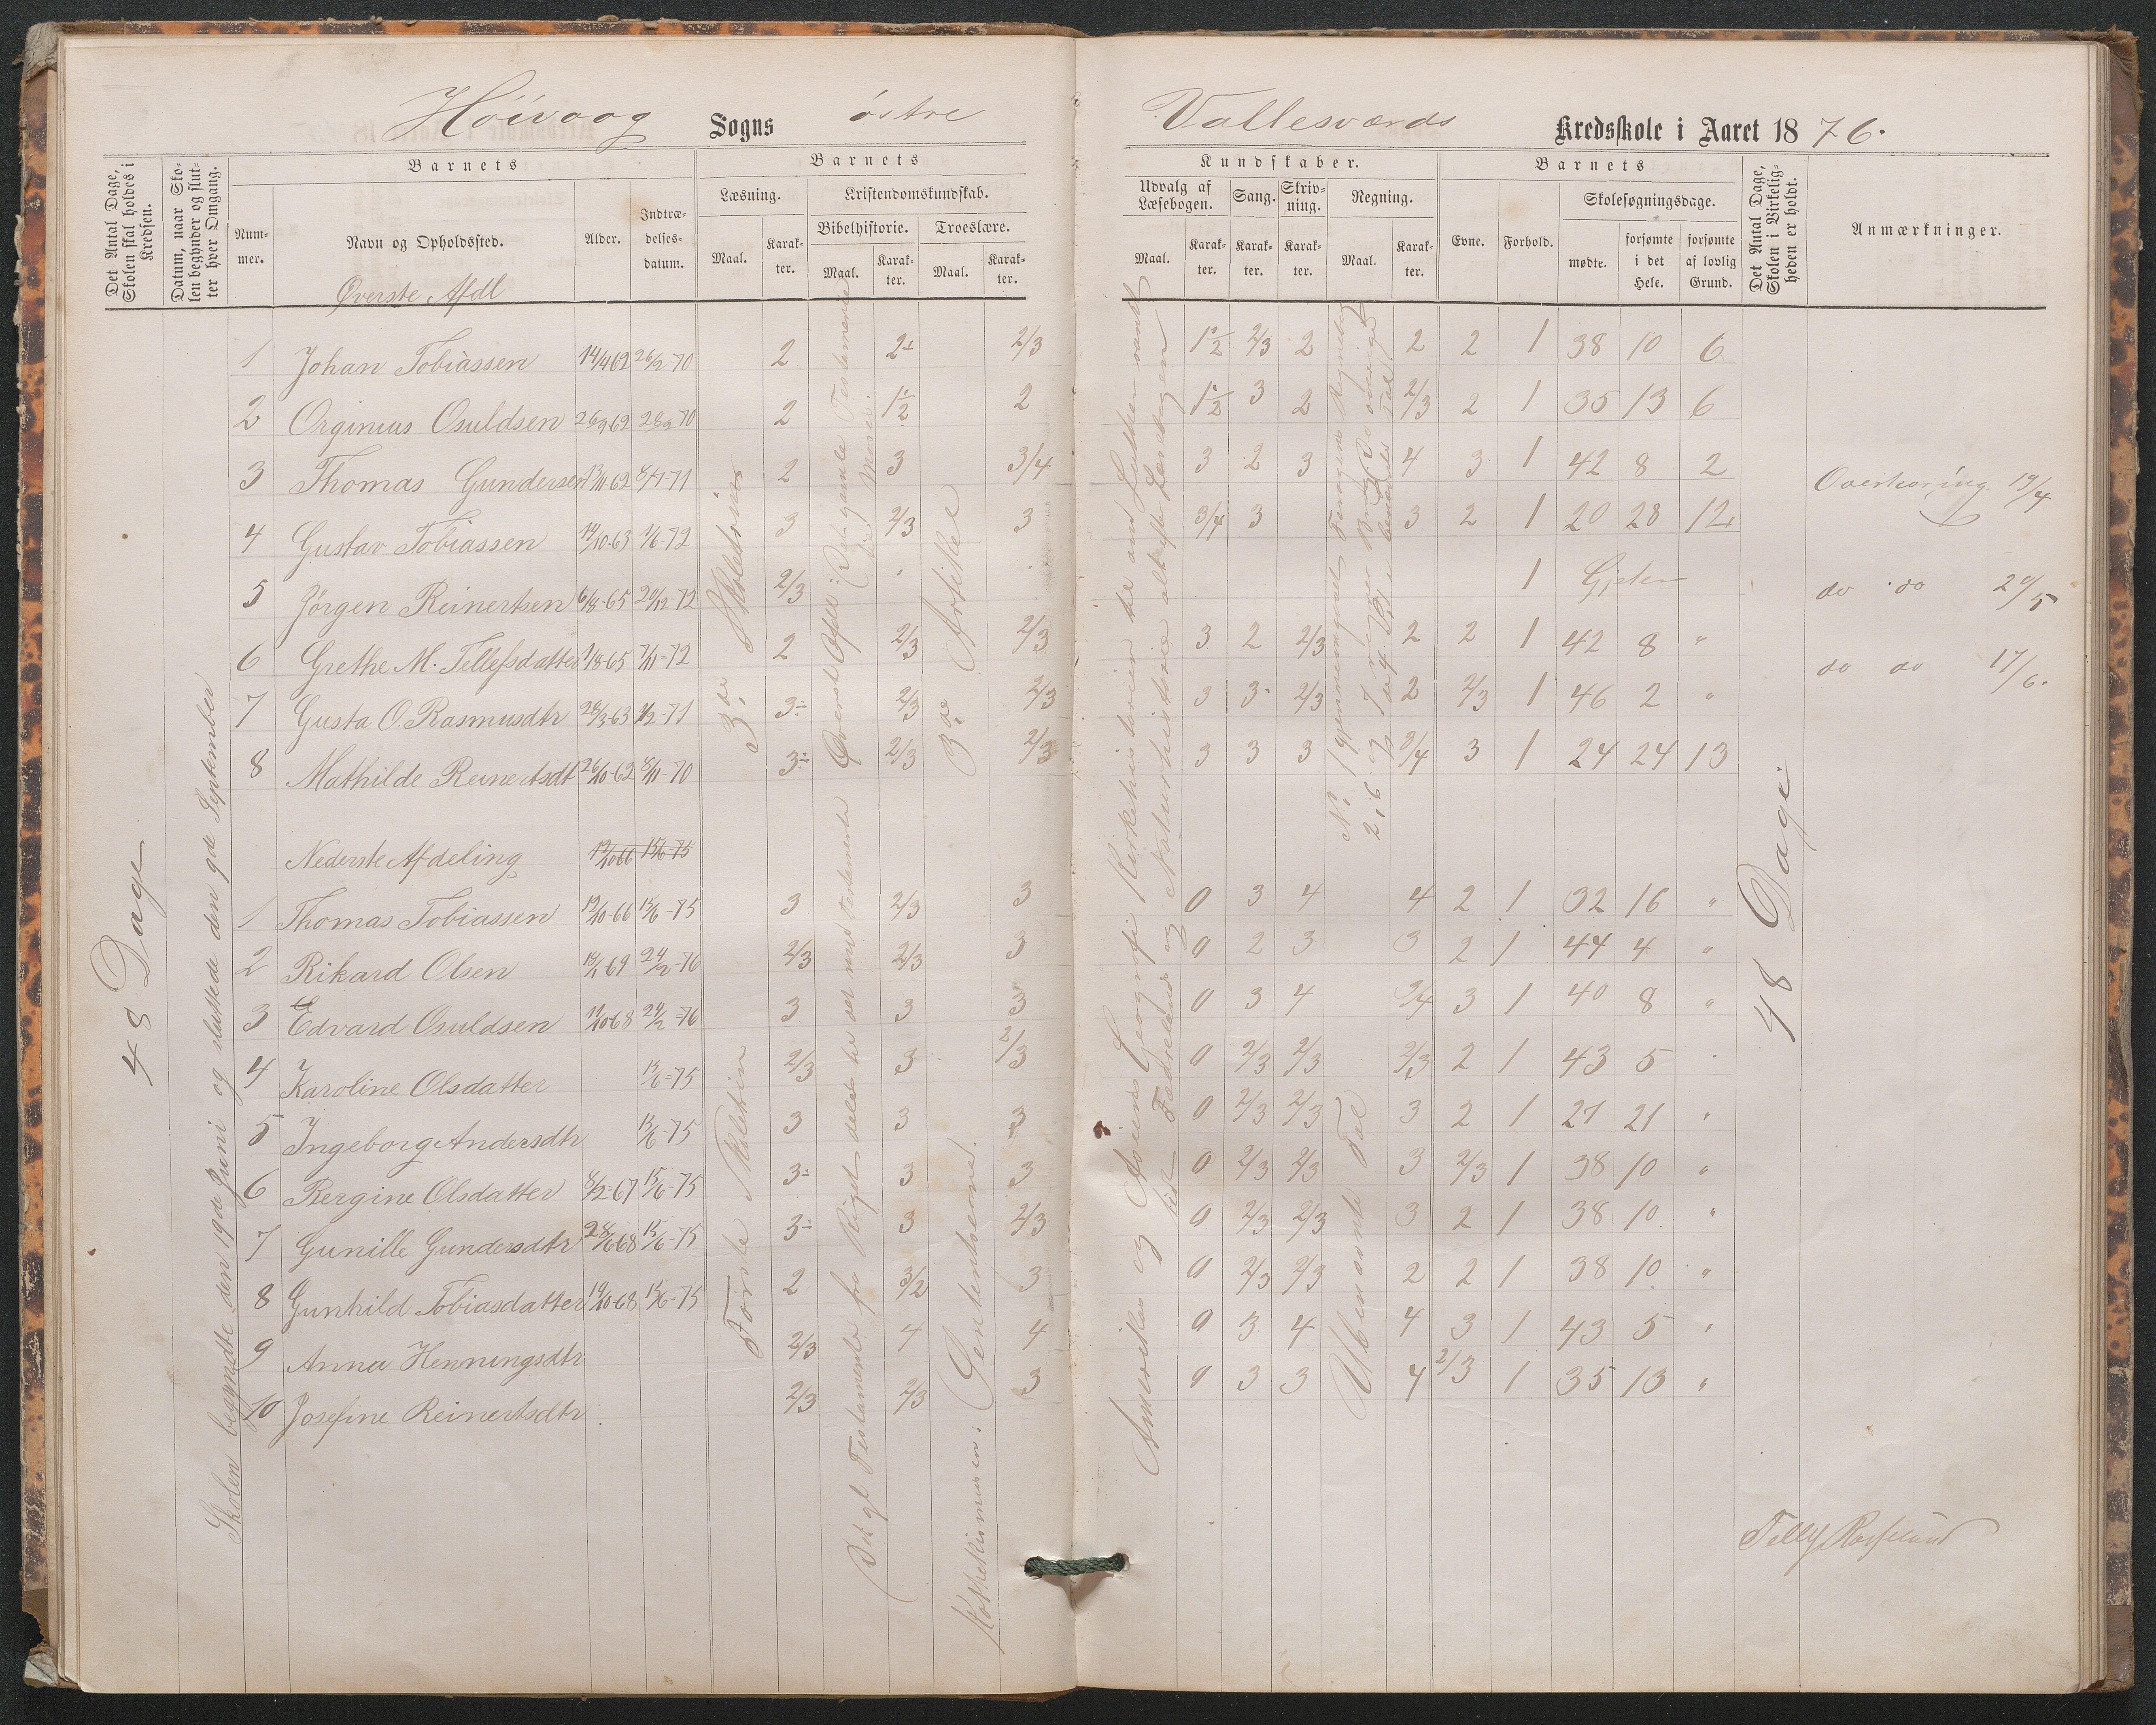 Höivaag Sogns östre Vallesværds Kredsskole i Aaret 1876.
Det Antal Dage, Skolen skal holdes i Kredsen.
Datum, naar Skolen begynder og slutter hver Omgang.
Barnets
Nummer.
Navn og Opholdssted.
Alder.
Indtrædelsesdatum.
Barnets
Læsning.
Maal.
Karakter.
Kristendomskundskab.
Bibelhistorie.
Maal.
Karakter.
Troeslære.
Maal.
Karakter.
Kundskaber.
Udvalg af Læsebogen.
Maal.
Karakter.
Sang.
Karakter.
Skrivning.
Karakter.
Regning.
Maal.
Karakter.
Barnets
Evne.
Forhold.
Skolesøgningsdage.
mødte.
forsømte i det Hele.
forsømte af lovlig Grund.
Det Antal Dage, Skolen i Virkeligheden er holdt.
Anmærkninger.
Øverste Afdl
1 Johan Tobiassen 14/4 62 26/2-70 2 2÷ 2/3 1½ 2/3 2 2 2 1 38 10 6
2 Orginius Osuldsen 2 1½ 2 1½ 3 2 2/3 2 1 35 13 6
3 Thomas Gundersen 2 3 3/4 3 2 3 4 3 1 42 8 2
Overhøring 19/4
4 Gustav Tobiassen 14/10-63 1/6-72 3 2/3 3 3/4 3 3 2 1 20 28 12
5 Jörgen Reinertsen 6/8-65 20/12-72 2/3 1 Gjeter
do do 20/5
6 Grethe M. Tellefsdatter 1/8-65 7/11-72 2 2/3 2/3 3 2 2/3 2 2 1 42 8 "
do do 17/6.
7 Gusta O. Rasmusdtr 28/3-63 1/2-71 3÷ 2/3 2/3 3 3 2/3 2 2/3 1 46 2 "
8 Mathilde Reinertsdt 26/10-62 8/11-70 3÷ 2/3 2/3 3 3 3 3/4 3 1 24 24 13
Nederste Afdeling 19/10 66 15/6-75
1 Thomas Tobiassen 19/10-66 15/6-75 3 2/3 3 0 3 4 4 2 1 32 16 "
2 Rikard Olsen 24/2-76 2/3 2/3 3 0 2 3 3 2 1 44 4 "
3 Edvard Osuldsen 11/10-68 24/2-76 3 3 3 0 3 4 3/4 3 1 40 8 "
4 Karoline Olsdatter 15/6-75 2/3 3 2/3 0 2/3 2/3 2/3 2 1 43 5
5 Ingeborg Andersdtr 15/6-75 3 3 3 0 2/3 2/3 3 2 1 27 21 "
6 Bergine Olsdatter 8/2-67 15/6-75 3÷ 3 3 0 2/3 2/3 3 2/3 1 38 10 "
7 Gunille Gundersdtr 28/6-68 15/6-75 3÷ 3 2/3 0 2/3 2/3 3 2 1 38 10 "
8 Gunhild Tobiasdatter 19/10-68 15/6-75 2 3/2 3 0 2/3 2/3 2 2 1 38 10 "
9 Anna Henningsdtr 2/3 4 4 0 3 4 4 3 1 43 5 "
10 Josefine Reinertsdtr. 2/3 2/3 3 0 3 3 4 2/3 1 35 13 "
48 Dage
Skolen begyndte den 19de Juni og sluttede den 9de September
3.de Skoletrin
Første Skoletrin
Øverste Afdl: Det gamle Testamente
Moses.
Det gl Testamente fra Rigets deling til det nye testamente
3.de Artikel
Kathekismusen: Sententserne.
Amerika og Asiens Geografi Kirkehistorien
Fædrelands og Naturhistorie alt efter Læsebogen
No 1 gjennemgaaet Regnebog
Ubenævnte Tal
48 Dage